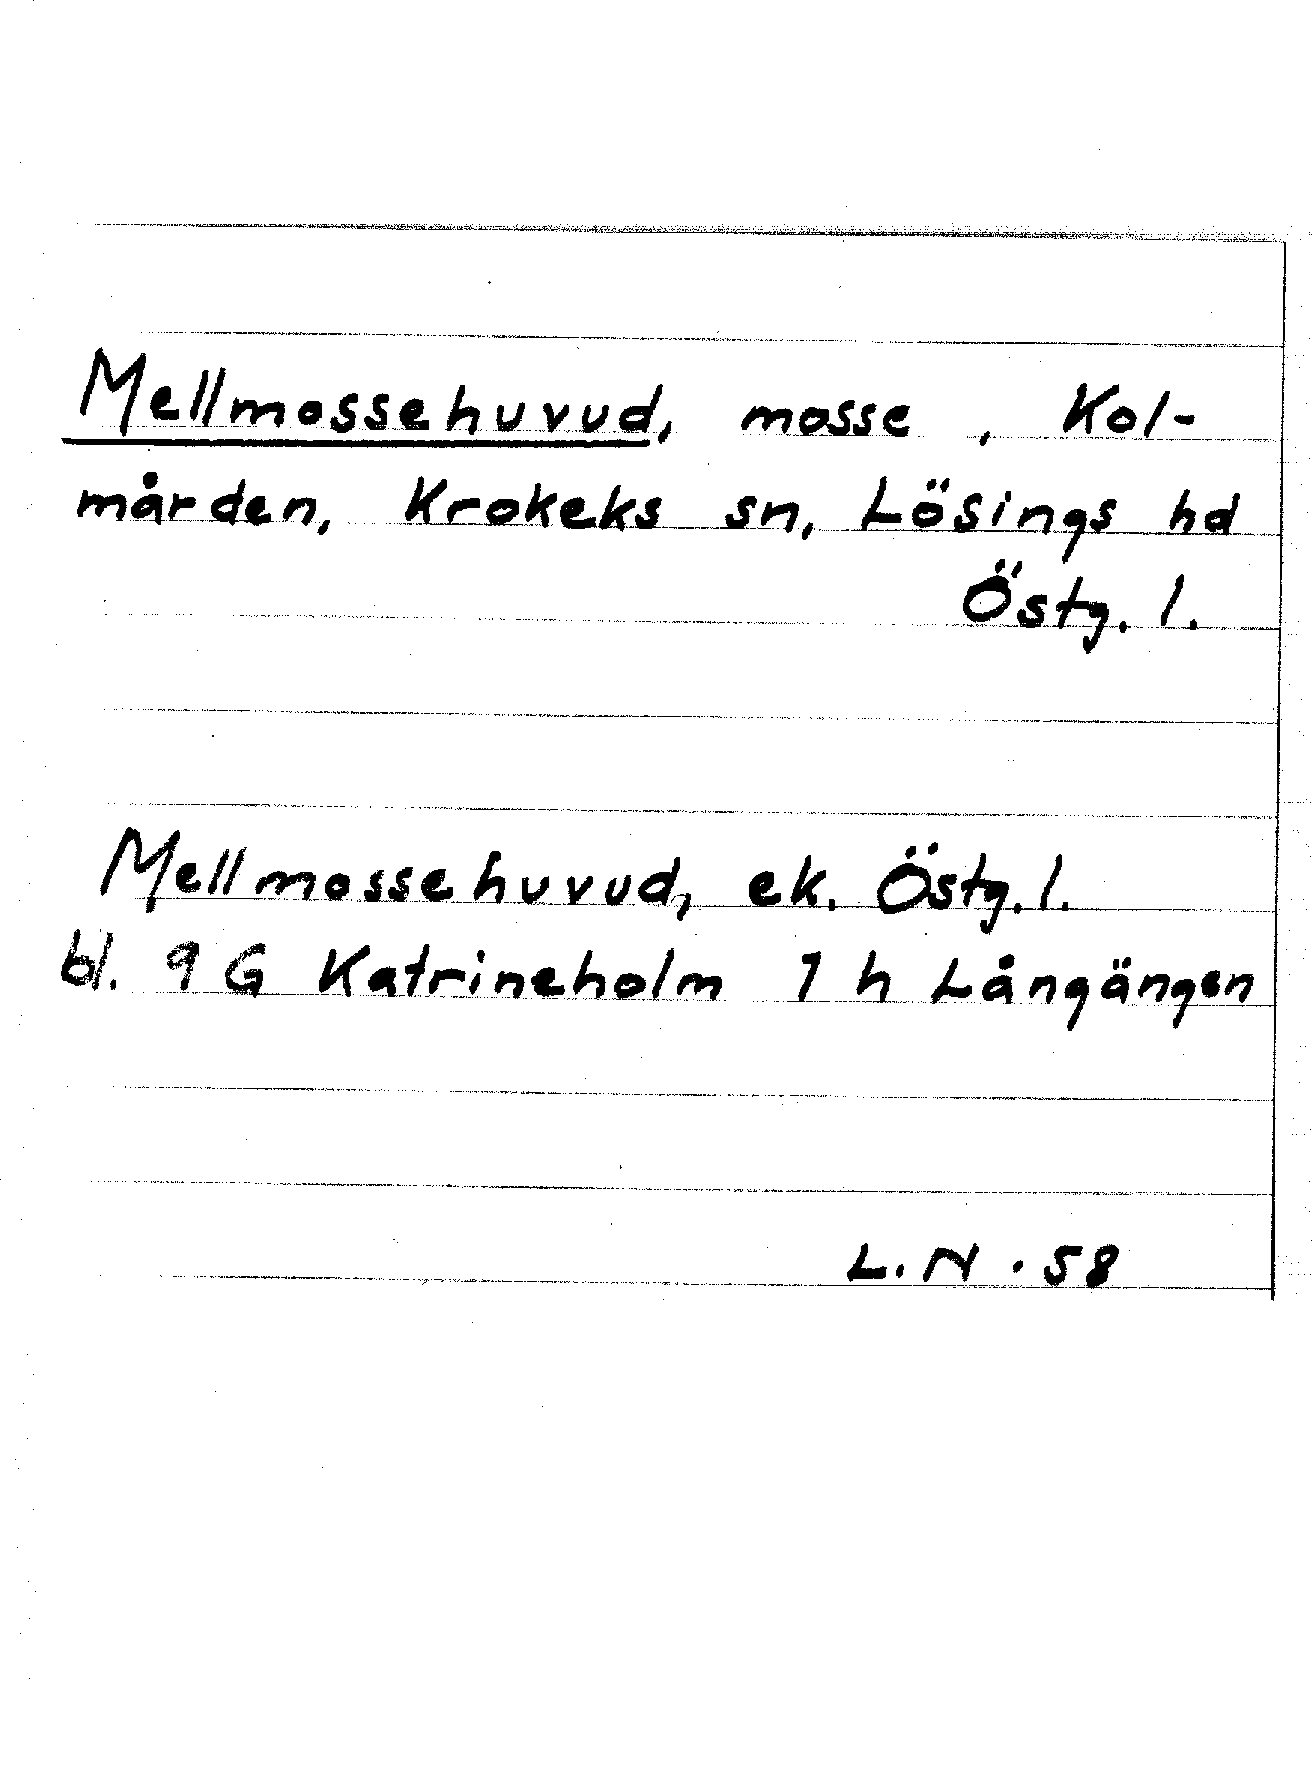 Mellmossehuvud, mosse , Kol-
mården, Krokeks sn, Lösings hd
Östg. l.
Mellmossehuvud, ek. Östg. l.
bl. 9 G Katrineholm 1 h Långängen
L. N . 58